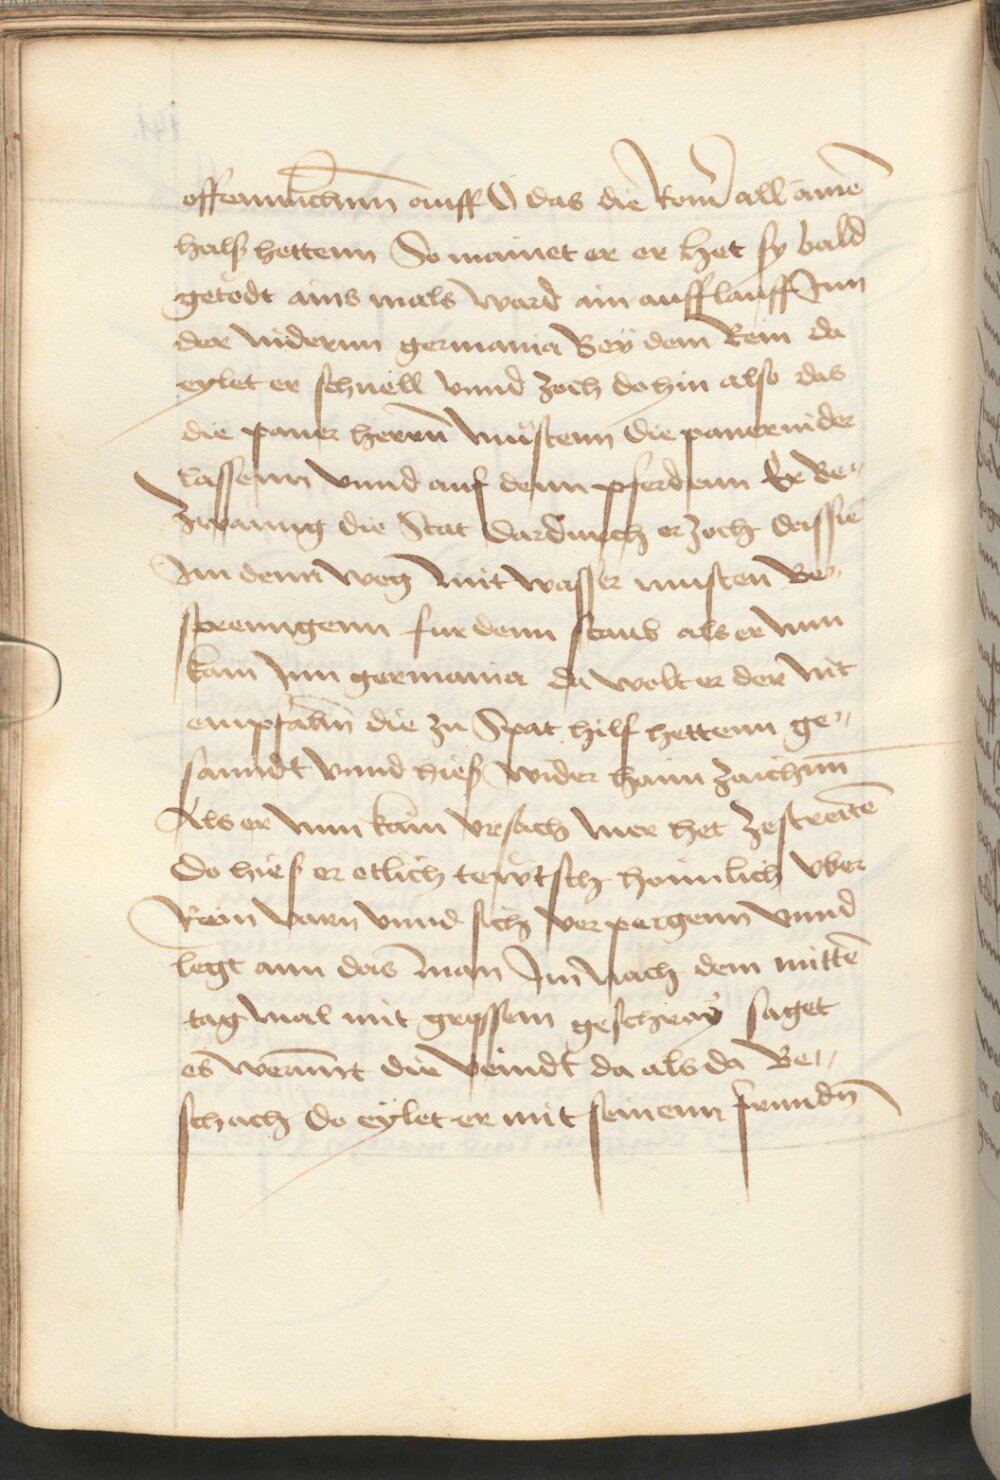 offennlichnn auff O das die Rom̄ all ainē
hals hettenn So mainet er er het sy bald
getödt ains mals ward ain aufflauff Inn
der nidernn germania Bey dem Rein da
eylet er schnell vnnd zoch dohin also das
die paner herrn̄ mustenn die paner nider
lassenn vnnd auf denn pferdenn Er Be¬
zwanng die Stat dardurch er zoch dassie
Im denn weg mit wasser musten Be¬
sprenngenn fur denn staub als er nun
kam Inn germania da wolt er der nit
empfahn̄ die zu Spat hilf hettenn ge¬
sanndt vnnd hies wider haim zaichnn̄
Als er nun kain vrsach mer het zestreitē
do hies er etlich tewtsch haimlich vber
Rein varn vnnd sich verpergenn vnnd
legt ann das man Im nach dem mittē
tag mal mit grossem geschray saget
es werṅnt die veindt da als da Be¬
schach do eylet er mit seinenn frundn̄